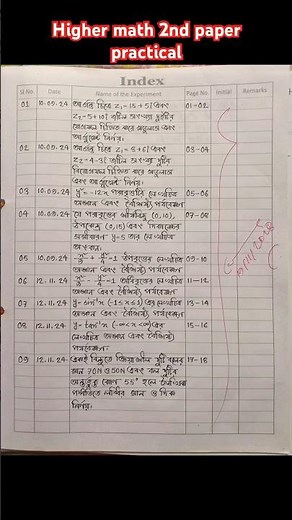 Higher math 2nd paper
practical
Index
Sl No. Date Name of the Experiment Page No. Initial Remarks
01 10.09.24 আর্গন্ড চিত্রে Z₁=15+5i এবং 01-02
Z₂=5+10i জটিল সংখ্যা দুইটির
যোগফল চিহ্নিত করে মডুলাস এবং
আর্গুমেন্ট নির্ণয়।
02 10.09.24 আর্গন্ড চিত্রে Z₁=5+6i এবং 03-04
Z₂=4-3i জটিল সংখ্যা দুটির
বিয়োগফল চিহ্নিত করে মডুলাস
এবং আর্গুমেন্ট নির্ণয়।
03 10.09.24 y²=-12x পরাবৃত্তটির লেখচিত্র 05-06
অঙ্কন এবং বৈশিষ্ট্য পর্যবেক্ষণ
04 10.09.24 যে পরাবৃত্তের শীর্ষবিন্দু (0,10), 07-08
উপকেন্দ্র (0,15) এবং দিকাক্ষের
সমীকরণ y=5 তার লেখচিত্র
অংকন।
05 10.09.24 উপবৃত্তের লেখচিত্র 09-10
অঙ্কন এবং বৈশিষ্ট্য পর্যবেক্ষণ
06 12.11.24 অধিবৃত্তের লেখচিত্র 11-12
অঙ্কন এবং বৈশিষ্ট্য পর্যবেক্ষণ
07 12.11.24 y=sin⁻¹x (-1≤x≤1) এর লেখচিত্র 13-14
অঙ্কন এবং বৈশিষ্ট্য পর্যবেক্ষণ
08 12.11.24 y=tan⁻¹x (-∞<x<∞) এর 15-16
লেখচিত্র অঙ্কন এবং বৈশিষ্ট্য
পর্যবেক্ষণ
09 12.11.24 একই বিন্দুতে ক্রিয়াশীল দুটি বলের 17-18
মান 70N ও 50N এবং বল দুটির
অন্তর্ভুক্ত কোণ 55° হলে
পদ্ধতিতে লব্ধির মান ও দিক
নির্ণয়।